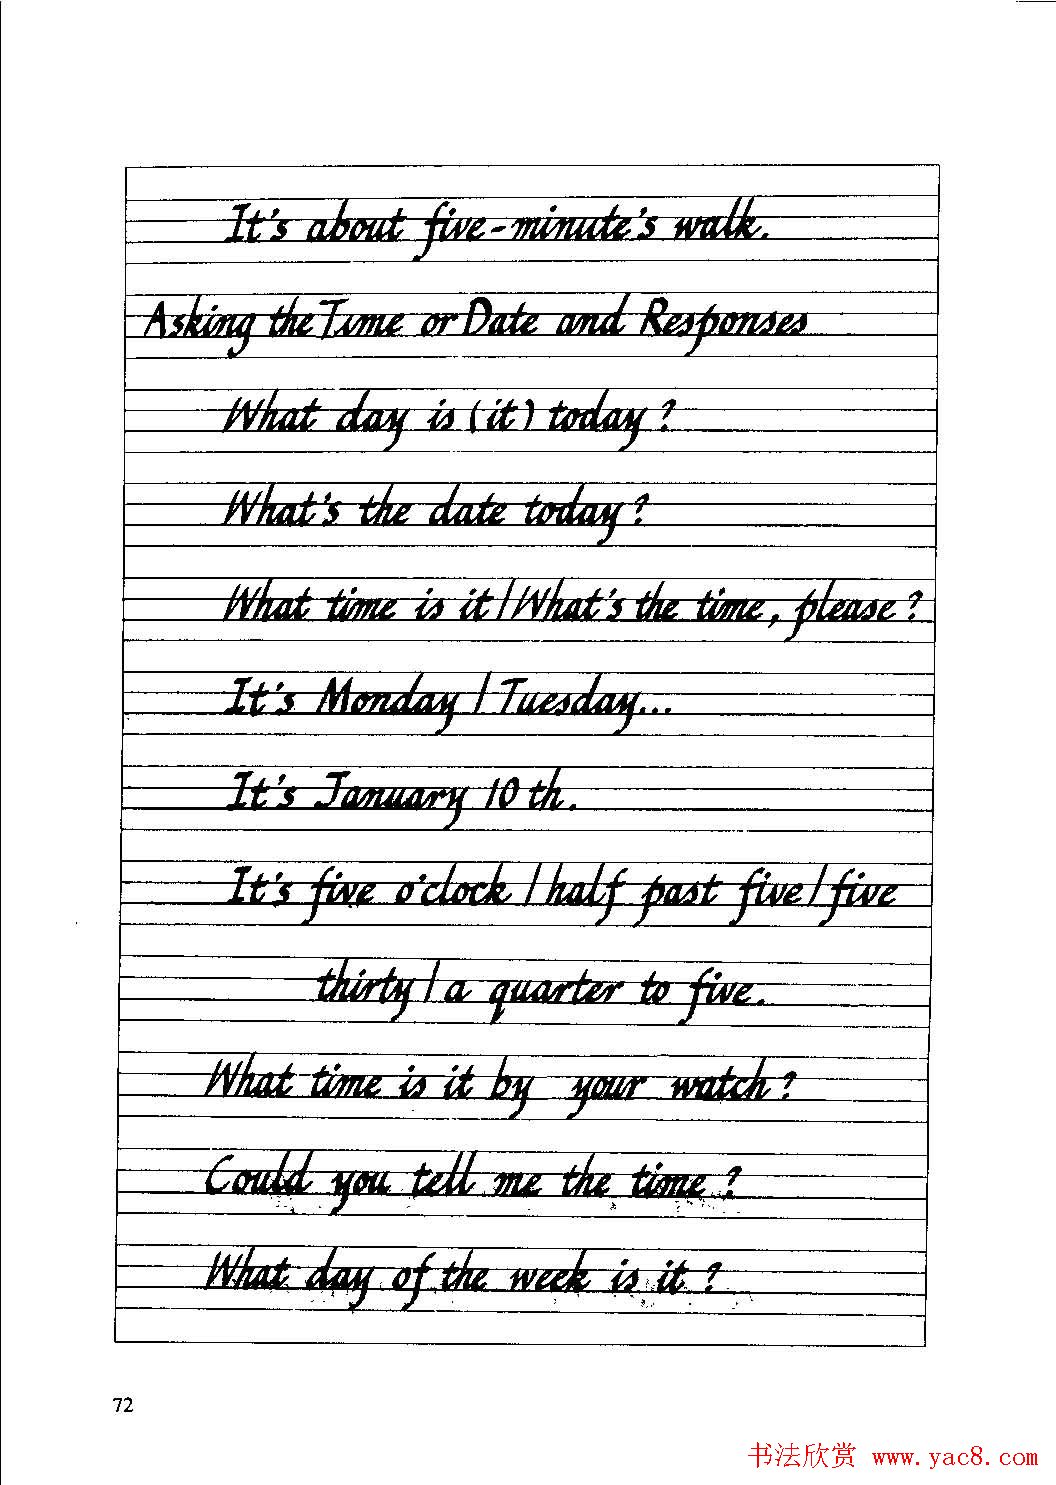 It's about five-minute's walk.
Asking the Time or Date and Responses
What day is (it) today?
What's the date today?
What time is it/What's the time, please?
It's Monday/Tuesday...
It's January 10th.
It's five o'clock/half past five/five
thirty/a quarter to five.
What time is it by your watch?
Could you tell me the time?
What day of the week is it?
72
书法欣赏 www.yac8.com